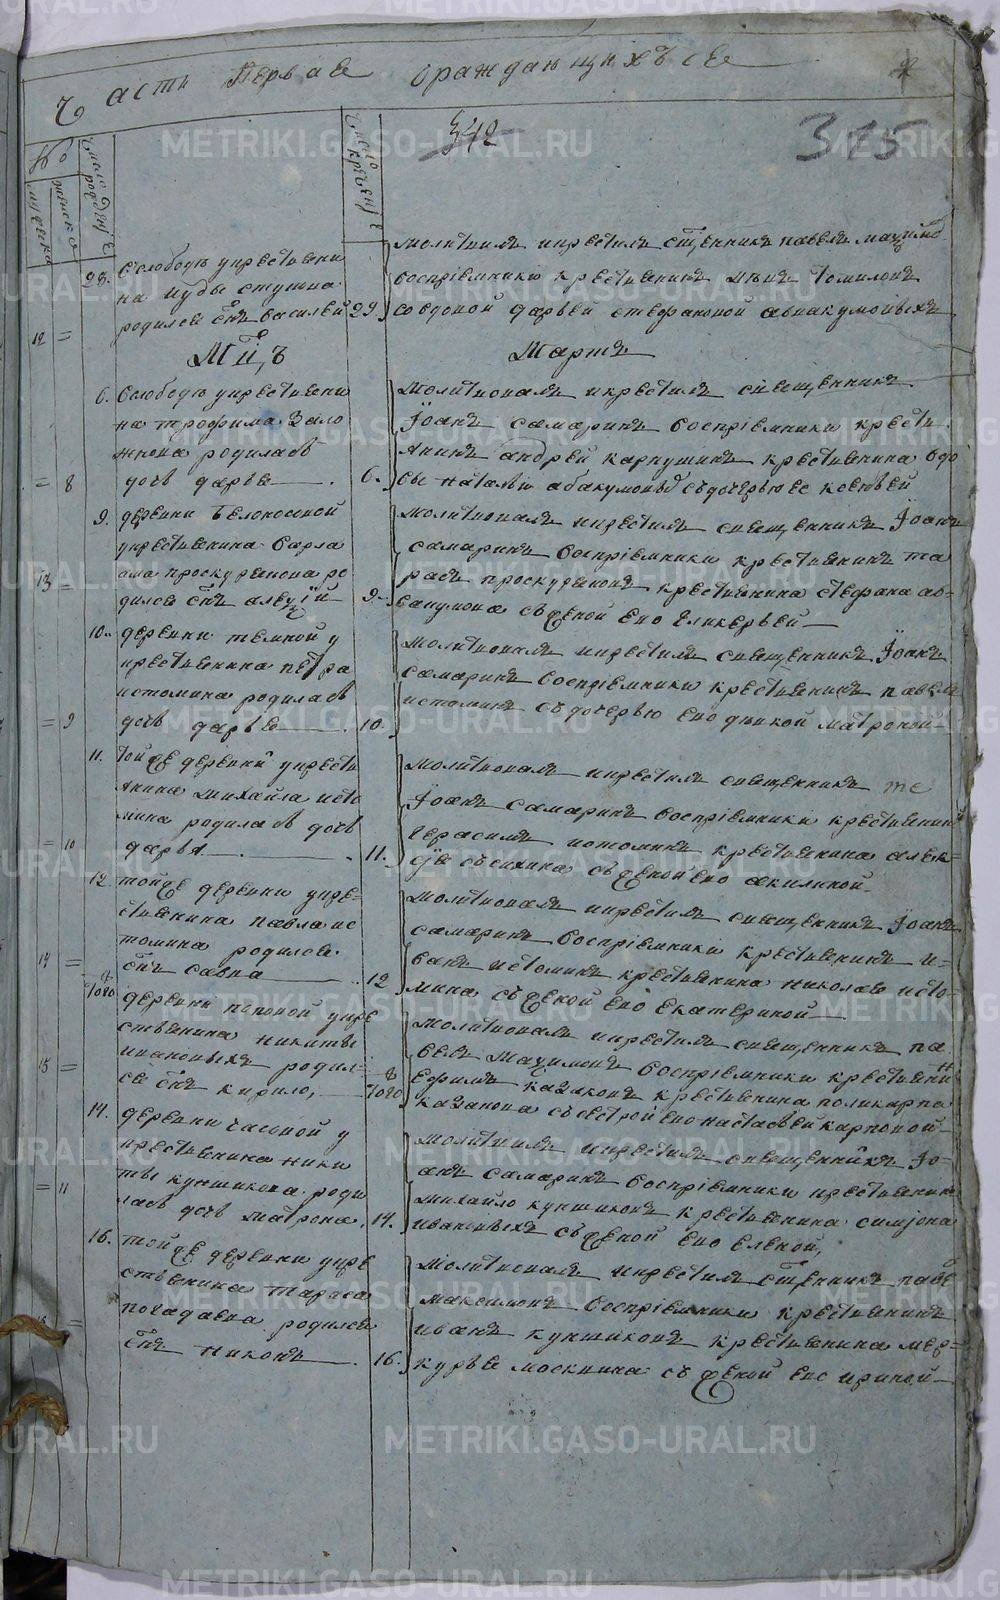 Часть Первая о раждающихся
342
315
№
мужеска
женска
число рождения
число крещения
28. Слободы у крестьяни
на Иуды ступина
родился снъ василей
12 =
29 молитвилъ икрестилъ сщенникъ павелъ максимо
воспріемники крестьянинъ иванъ томиловъ
со вдовой дарьей стефановой авакумовыхъ
Мцъ Мартъ
6. Слободы у крестьяни
на трофима Зало
знова родилась
дочь дарья
= 8
6. молитвовалъ икрестилъ священникъ
Іоанъ самаринъ воспріемники крестья
янинъ андрей карпушинъ крестьянина вдо
вы натальи абакумовы съ дочерью ее ксеньей
9. деревни Белоносовой
у крестьянина варла
ама проскурякова ро
дился снъ алексій
13 =
9. молитвовалъ икрестилъ священникъ Іоанъ
самаринъ воспріемники крестьянинъ та
расъ проскуряковъ крестьянина стефана ав-
вакумова съ женой ево гликерьей
10. деревни темной у
крестьянина петра
истомина родилась
дочь дарья
= 9
10. молитвовалъ икрестилъ священникъ Іоанъ
самаринъ воспріемники крестьянинъ павелъ
истоминъ съ дочерью ево девкой матроной
11. той же деревни у крестья
янина михайла исто
мина родилась дочь
дарья
= 10
11. молитвовалъ икрестилъ священникъ тс
Іоанъ самаринъ воспріемники крестьянинъ
герасимъ истоминъ крестьянина алек-
сея съ женой ево акилиной
12. той же деревни у кре-
стьянина павла ис
томина родился
снъ савва
14 =
12 молитвовалъ икрестилъ священникъ Іоанъ
самаринъ воспріемники крестьянинъ и-
ванъ истоминъ крестьянина николая исто-
мина съ женой ево екатериной
деревни поповой у кре
стьянина никиты
ивановыхъ родил-
ся снъ кирило,
15 =
молитвовалъ икрестилъ священникъ па
велъ максимовъ воспріемники крестьянинъ
ефимъ казаковъ крестьянина поликарпа
казакова съ сестрой ево настасьей карповой
14. деревни часовой у
крестьянина ники
ты кункшикова роди
лась дочь матрона,
= 11
14. молитвилъ икрестилъ священникъ Іо-
анъ самаринъ воспріемники крестьянинъ
михайло кункшиковъ крестьянина симіона
ивановыхъ съ женой ево еленой,
16. той же деревни у кре
стьянина тараса
погадаева родился
снъ никонъ
16. молитвовалъ икрестилъ сщенникъ паве
максимовъ воспріемники крестьянинъ
иванъ кункшиковъ крестьянина мер-
курья москвина съ женой ево ириной
METRIKI.GASO-URAL.RU